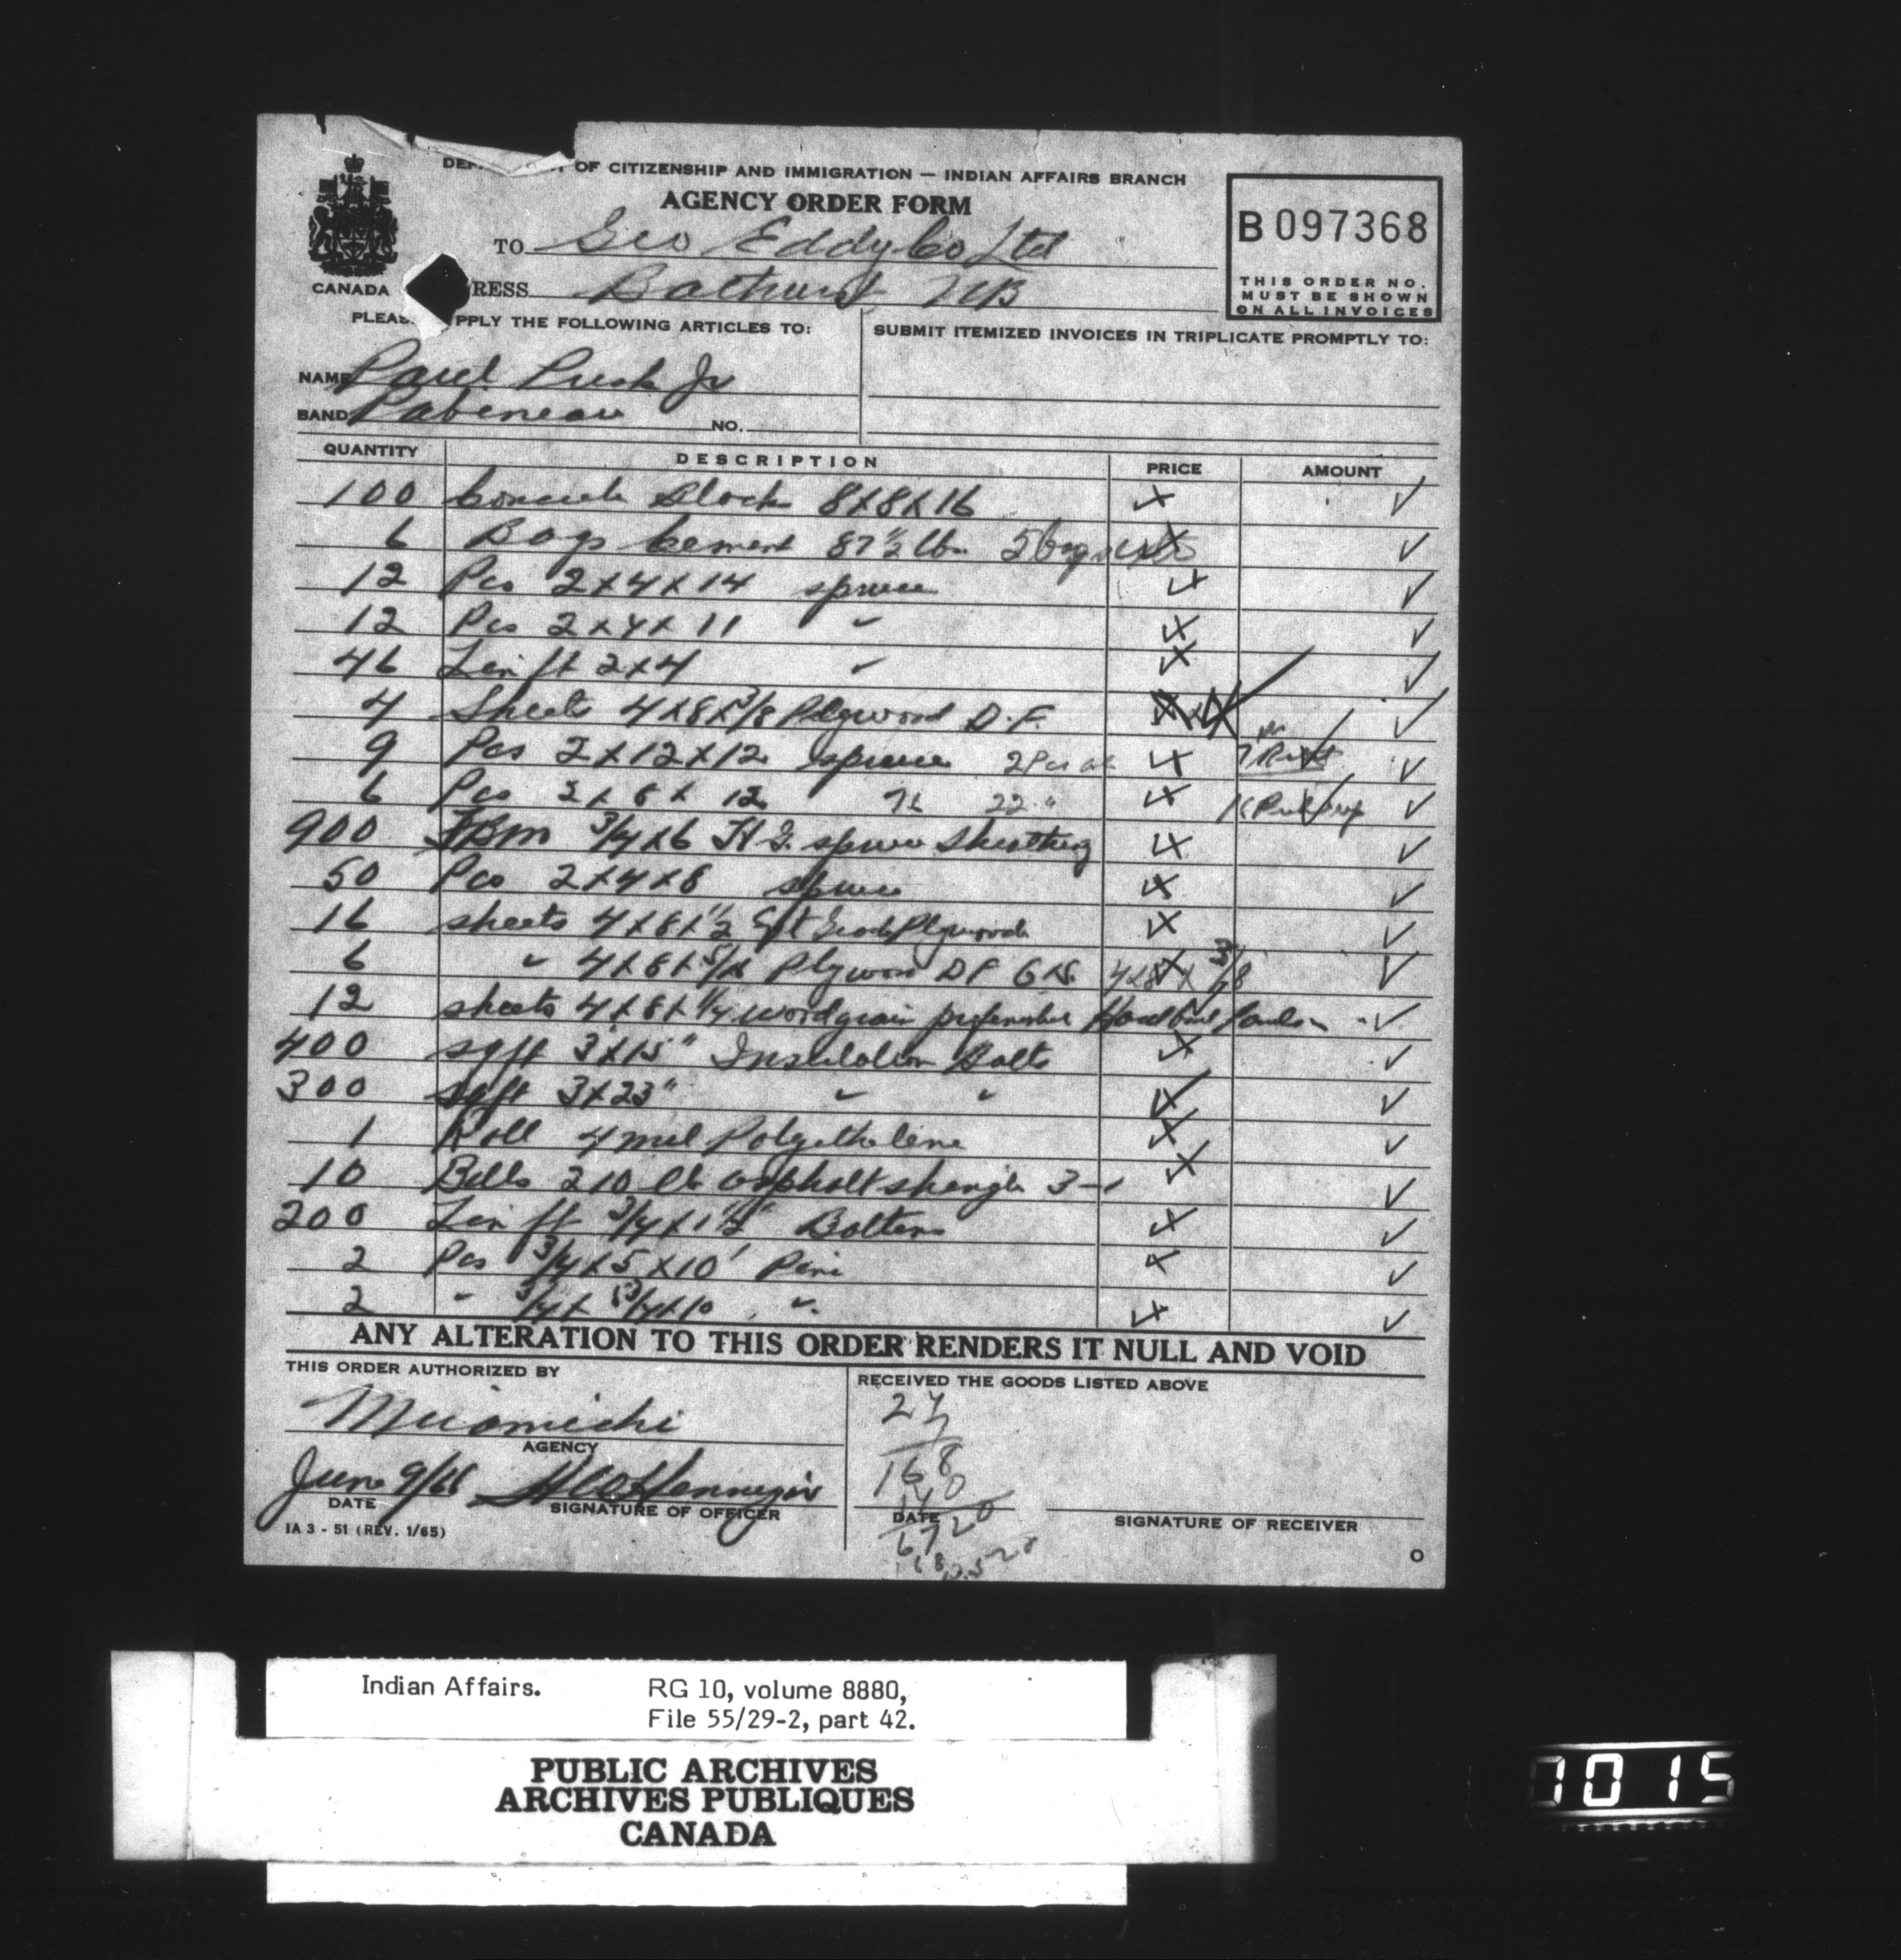 OF CITIZENSHIP AND IMMIGRATION — INDIAN AFFAIRS BRANCH
AGENCY ORDER FORM
TO Geo Eddy Co Ltd
B 097368
THIS ORDER NO.
MUST BE SHOWN
ON ALL INVOICES
CANADA
RESS Bathurst, NB
PLEAS PPLY THE FOLLOWING ARTICLES TO:
SUBMIT ITEMIZED INVOICES IN TRIPLICATE PROMPTLY TO:
NAME Paul Jr
BAND Pabineau NO.
QUANTITY DESCRIPTION PRICE AMOUNT
100 Concrete Block 8x8x16
6 Bags Cement 87 1/2 lbs 5 bags
12 Pcs 2x4x14 spruce
12 Pcs 2x4x11 "
46 Lin ft 2x4 "
4 Sheets 4x8x3/8 Plywood D.F.
9 Pcs 2x12x12 spruce 2 Pcs
6 Pcs 2x8x12 22 "
900 FBM 3/4x6 spruce Sheathing
50 Pcs 2x4x8 spruce
16 sheets 4x8x1/2 Grade Plywood
6 " 4x8x Plywood DF 4x8x 3/8
12 sheets 4x8x1/4 woodgrain
400 sqft 3x15" Insulation Batts
300 sqft 3x23" " "
1 Roll 4 mil Polyethelene
10 Bdls 210 lb asphalt shingle 3-1
200 Lin ft 3/4x1 1/2" Battens
2 Pcs 3/4x5x10' Pine
2 " 3/4x "
ANY ALTERATION TO THIS ORDER RENDERS IT NULL AND VOID
THIS ORDER AUTHORIZED BY
RECEIVED THE GOODS LISTED ABOVE
Miramichi
AGENCY
24
7
168
June 9/66
DATE
SIGNATURE OF OFFICER
DATE
SIGNATURE OF RECEIVER
6720
IA 3 - 51 (REV. 1/65)
Indian Affairs. RG 10, volume 8880,
File 55/29-2, part 42.
PUBLIC ARCHIVES
ARCHIVES PUBLIQUES
CANADA
1015